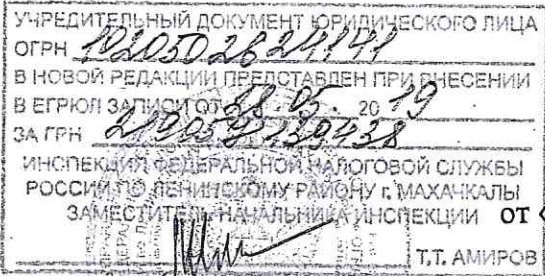 УЧРЕДИТЕЛЬНЫЙ ДОКУМЕНТ ЮРИДИЧЕСКОГО ЛИЦА
ОГРН 1020502624141
В НОВОЙ РЕДАКЦИИ ПРЕДСТАВЛЕН ПРИ ВНЕСЕНИИ
В ЕГРЮЛ ЗАПИСИ ОТ 28. 05. 2019
ЗА ГРН
ИНСПЕКЦИЯ ФЕДЕРАЛЬНОЙ НАЛОГОВОЙ СЛУЖБЫ
РОССИИ ПО ЛЕНИНСКОМУ РАЙОНУ г. МАХАЧКАЛЫ
ЗАМЕСТИТЕЛЬ НАЧАЛЬНИКА ИНСПЕКЦИИ от «
Т.Т. АМИРОВ